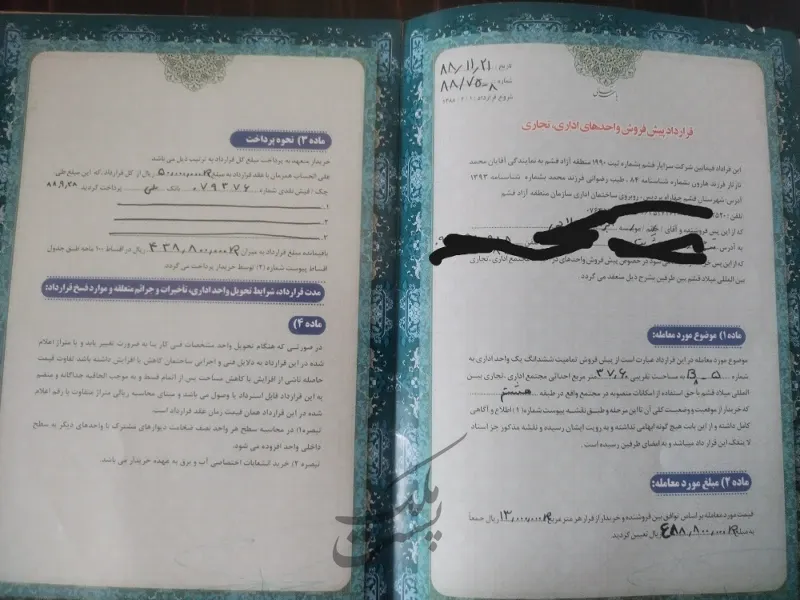 تاریخ: ۸۸/۱۱/۲۱
شماره: ۸۸/۷۵۰۸
شروع قرارداد: ۱۳۸۸/۰۲/۰۱
قرارداد پیش فروش واحدهای اداری، تجاری
این قرارداد فیمابین شرکت سرایار قشم بشماره ثبت ۱۹۹۰ منطقه آزاد قشم به نمایندگی آقایان محمد
فرزند هارون بشماره شناسنامه ۸۴، طیب رضوانی فرزند محمد بشماره شناسنامه ۱۳۹۳
آدرس: شهرستان قشم چهارراه پردیس، روبروی ساختمان اداری سازمان منطقه آزاد قشم
تلفن:
که از این پس فروشنده و آقای / خانم / موسسه
به آدرس
که از این پس در خصوص پیش فروش واحدهای مجتمع اداری، تجاری
بین المللی میلاد قشم بین طرفین بشرح ذیل منعقد می گردد.
ماده ۱) موضوع مورد معامله:
موضوع مورد معامله در این قرارداد عبارت است از پیش فروش تمامیت ششدانگ یک واحد اداری به
شماره B۸-۵ به مساحت تقریبی ۳۷,۶۰ متر مربع احداثی مجتمع اداری، تجاری بین
المللی میلاد قشم با حق استفاده از امکانات منصوبه در مجتمع واقع در طبقه هشتم
که خریدار از موقعیت و وضعیت کلی آن تا این مرحله و طبق نقشه پیوست شماره (۱) اطلاع و آگاهی
کامل داشته و از این بابت هیچ گونه ابهامی نداشته و به رویت ایشان رسیده و نقشه مذکور جزء اسناد
لاینفک این قرارداد میباشد و به امضای طرفین رسیده است.
ماده ۲) مبلغ مورد معامله:
قیمت مورد معامله بر اساس توافق بین فروشنده و خریدار از قرار هر متر مربع ۱۳,۰۰۰,۰۰۰ ریال جمعاً
به مبلغ ۴۸۸,۸۰۰,۰۰۰ ریال تعیین گردید.
ماده ۳) نحوه پرداخت
خریدار متعهد به پرداخت مبلغ کل قرارداد به ترتیب ذیل می باشد.
علی الحساب همزمان با عقد قرارداد به مبلغ ۵۰,۰۰۰,۰۰۰ ریال از کل قرارداد، که این مبلغ طی
چک / فیش نقدی شماره ۰۷۹۳۷۶ بانک ملی پرداخت گردید. ۸۸,۹,۲۸
۱.
۲.
۳.
باقیمانده مبلغ قرارداد به میزان ۴۳۸,۸۰۰,۰۰۰ ریال در اقساط ۱۰۰ ماهه طبق جدول
اقساط پیوست شماره (۲) توسط خریدار پرداخت می گردد.
مدت قرارداد، شرایط تحویل واحد اداری، تأخیرات و جرائم متعلقه و موارد فسخ قرارداد:
ماده ۴)
در صورتی که هنگام تحویل واحد مشخصات فنی کار بنا به ضرورت تغییر یابد و یا متراژ اعلام
شده در این قرارداد به دلایل فنی و اجرایی ساختمان کاهش یا افزایش داشته باشد تفاوت قیمت
حاصله ناشی از افزایش یا کاهش مساحت پس از اتمام قسط و به موجب الحاقیه جداگانه و منضم
به این قرارداد قابل استرداد یا وصول می باشد و مبنای محاسبه ریالی متراژ متفاوت با رقم اعلام
شده در این قرارداد همان قیمت زمان عقد قرارداد است.
تبصره ۱) در محاسبه سطح هر واحد نصف ضخامت دیوارهای مشترک با واحدهای دیگر به سطح
داخلی واحد افزوده می شود.
تبصره ۲) خرید انشعابات اختصاصی آب و برق به عهده خریدار می باشد.